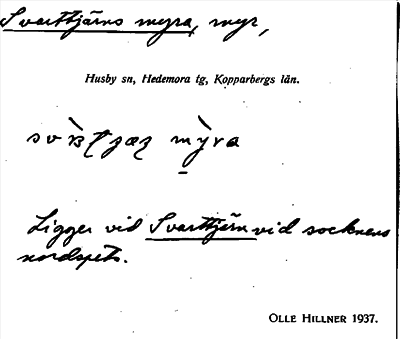 Svarttjärns myra, myr,
Husby sn, Hedemora tg, Kopparbergs län.
myra
Ligger vid Svarttjärn vid socknens
nordspets.
OLLE HILLNER 1937.